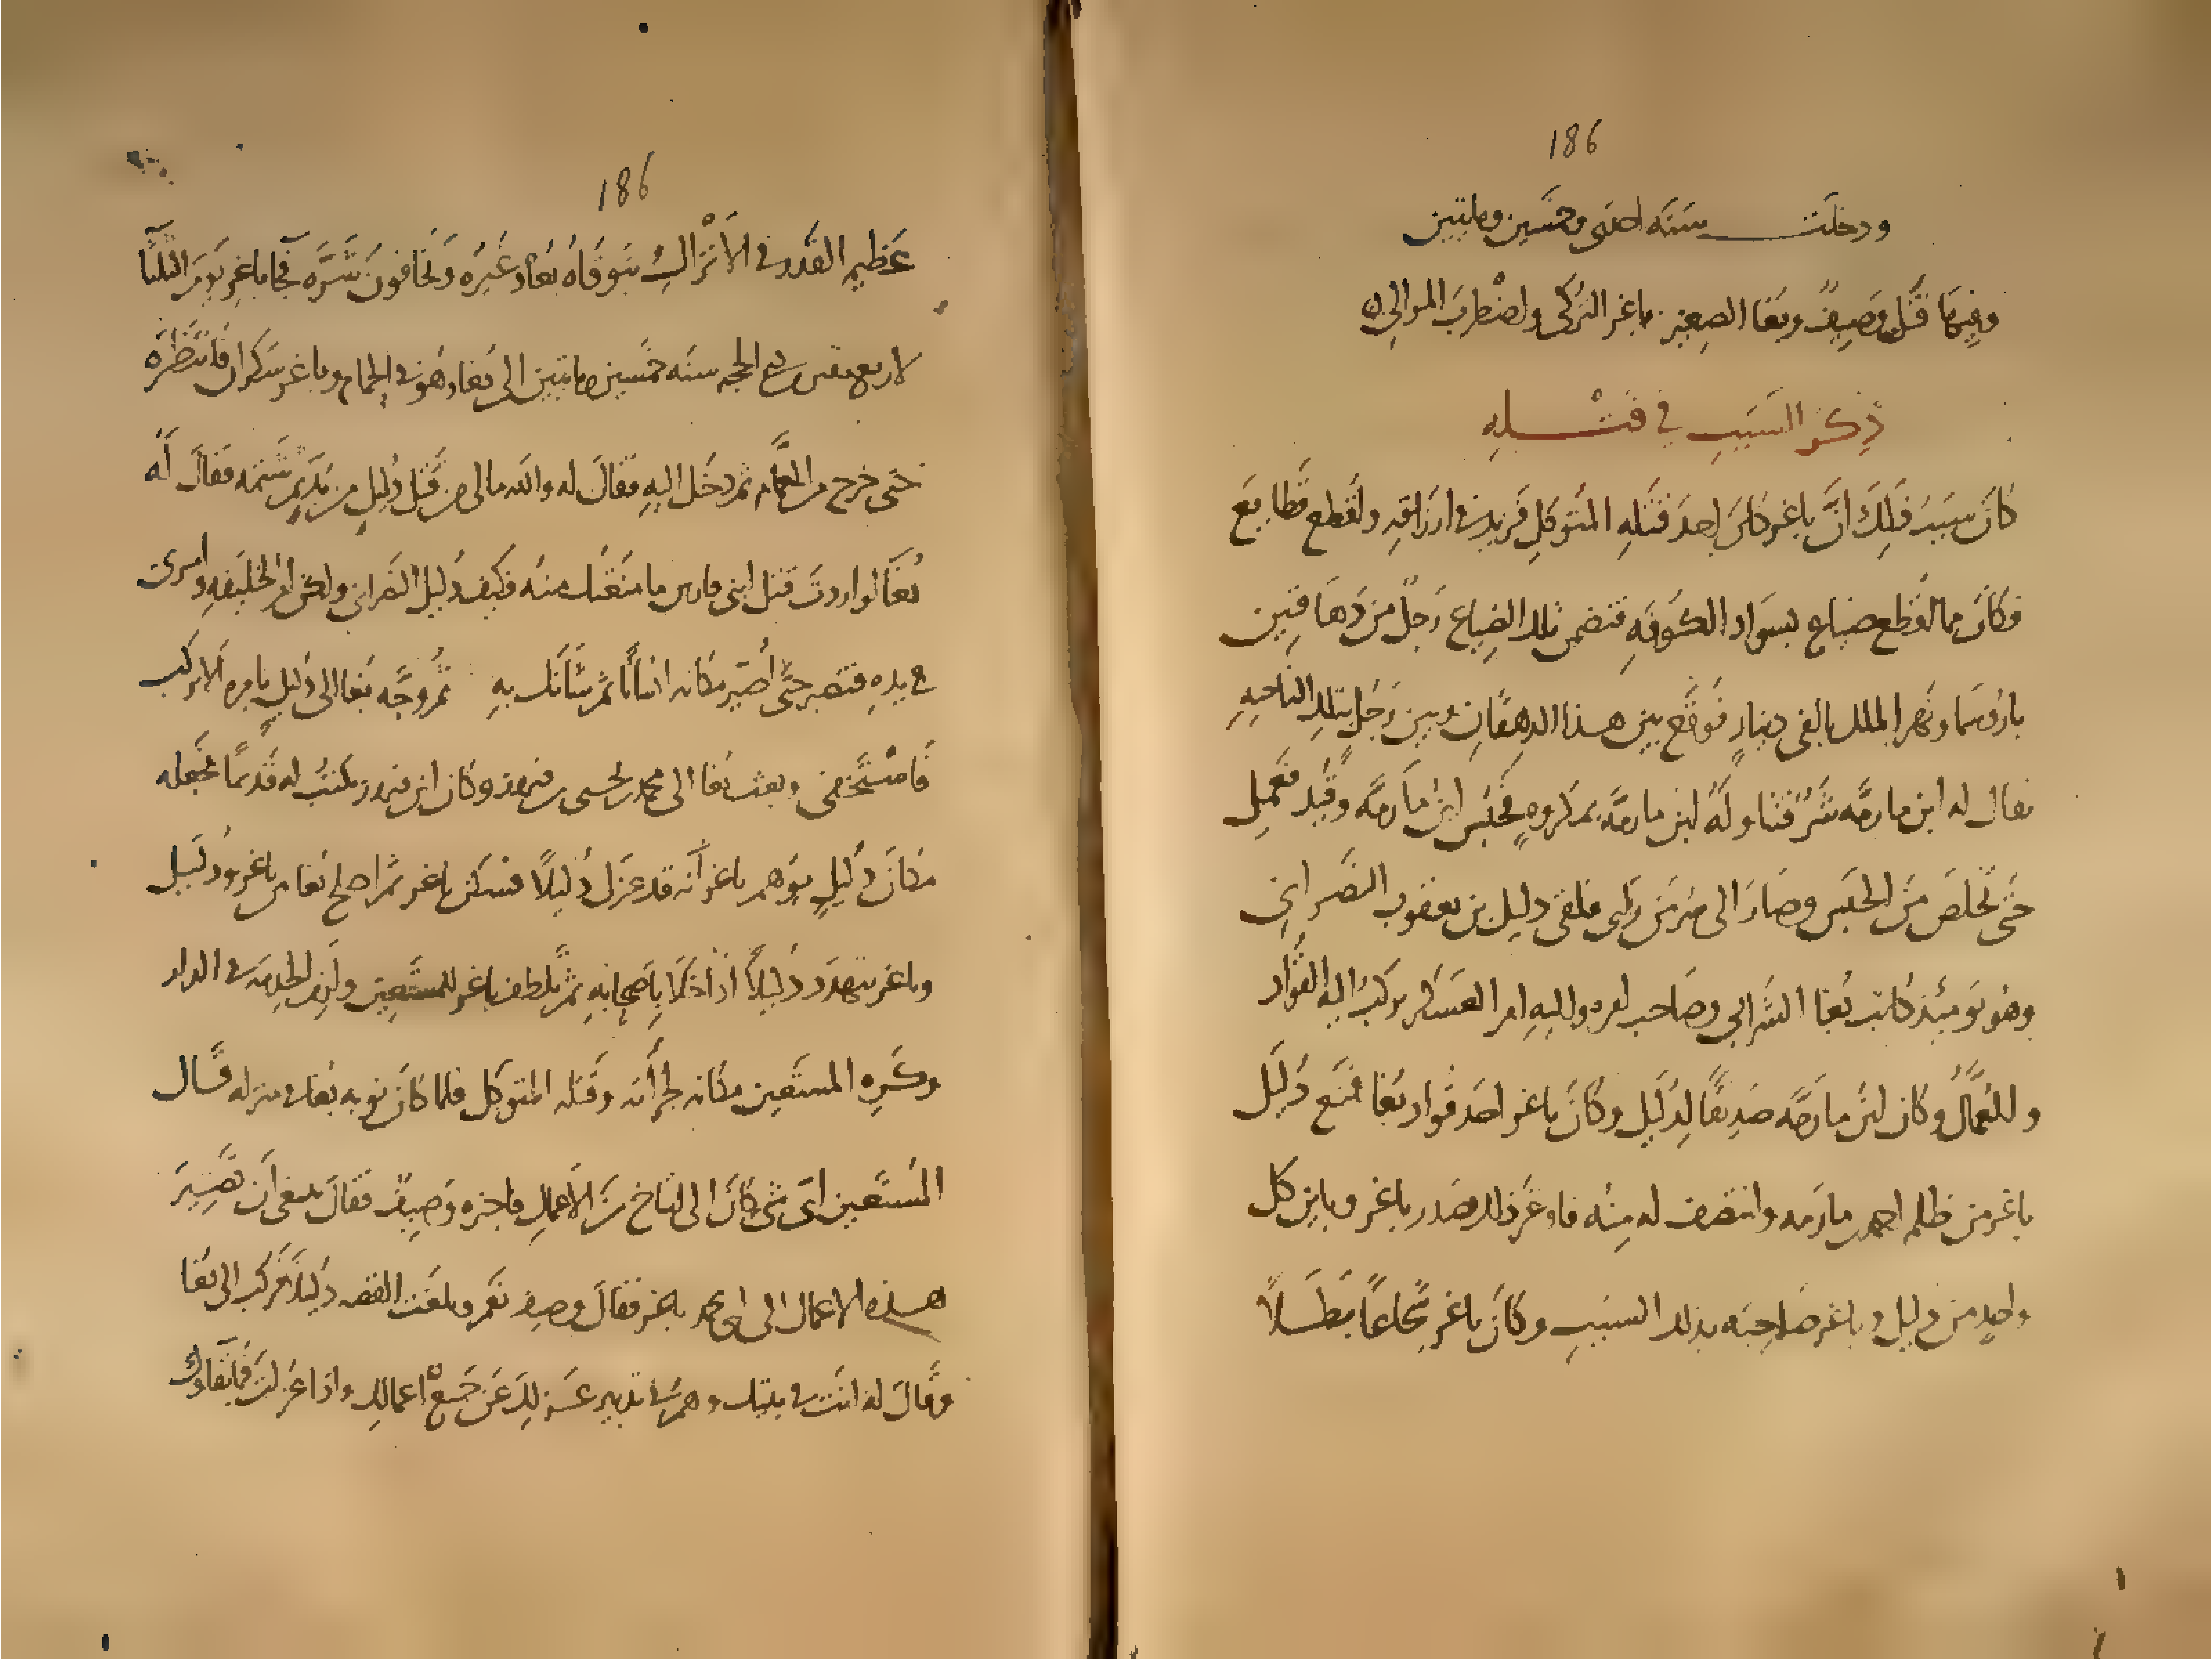 186
ودخلت سنه احدى وخمسين ومايتين
وفيها قتل وصيف وبغا الصغير باغر التركى واضطرب الموالى
ذكر السبب في قتله
كان سبب ذلك انّ باغر كان احد قتله المتوكل فزيد فى ارزاقه واقطع قطايع
فكان مما اقطع ضياع بسواد الكوفه فتضمن تلك الضياع رجل من دهاقين
باروسما ونهر الملك بالفى دينار فوقع بين هذا الدهقان وبين رجل بتلك الناحيه
يقال له ابن مارمّه شر فتناوله ابن مارمّه بمكروه فحبس ابن مارمّه وقيد فعمل
حتى تخلص من الحبس وصار الى سر من رأى فلقى دليل بن يعقوب النصرانى
وهو يوميذ كاتب بغا الشرابى وصاحب امره واليه امر العسكر يركب اليه القواد
والعمال وكان ابن مارمّه صديقا لدليل وكان باغر احد قواد بغا فمنع دليل
باغر من ظلم احمد بن مارمه وانتصف له منه فاوغر ذلك صدر باغر وباين كل
واحد من دليل وباغر صاحبه بذلك السبب وكان باغر شجاعا بطلا
186
عظيم القدر فى الاتراك يتوقاه بغا وغيره ويخافون شره فجا باغر يوم الثلثا
لاربع بقين من ذى الحجه سنه خمسين ومايتين الى بغا وهو فى الحمام وباغر سكران فانتظره
حتى خرج من الحمام ثم دخل اليه فقال له والله مالى من قتل دليل من بد ثم شتمه فقال له
بغا لو اردت قتل ابنى فارس ما منعتك منه فكيف دليل النصرانى ولكن امر الخليفه وامرى
فى يده فتصبر حتى اصير مكانه انسانا ثم شأنك به ثم وجّه بغا الى دليل يامره الا يركب
فاستخفى وبعث بغا الى محمد بن يحيى بن فيروز وكان ابن فيروز يكتب له قديما فجعله
مكان دليل يوهم باغر انه قد عزل دليلا فسكن باغر ثم اصلح بغا بين باغر ودليل
وباغر يتهدد دليلا اذا خلا باصحابه ثم تلطف باغر للمستعين ولزم الخدمه فى الدار
وكره المستعين مكانه لجرأته وقتله المتوكل فلما كان نوبه بغا فى منزله قال
المستعين اى شى كان الى ايتاخ من الاعمال فاخبره وصيف فقال ينبغى ان تصير
هذه الاعمال الى ابى محمد باغر فقال وصيف نعم وبلغت القصه دليلا فركب الى بغا
وقال له انت فى بيتك وهم فى تدبير عزلك عن جميع اعمالك واذا عزلت فما بقاوك